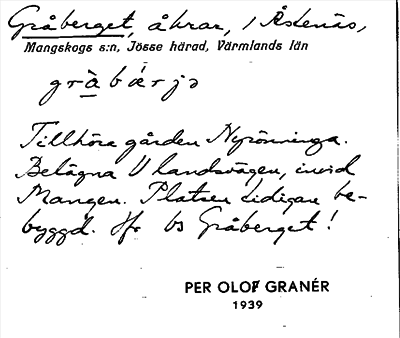 Gråberget, åkrar, i Åstenäs,
Mangskogs s:n, Jösse härad, Värmlands län
gràbærjə
Tillhöra gården Nyrönninga.
Belägna V landsvägen, invid
Mangen. Platsen tidigare be-
byggd. Jfr bs Gråberget!
PER OLOF GRANÉR
1939